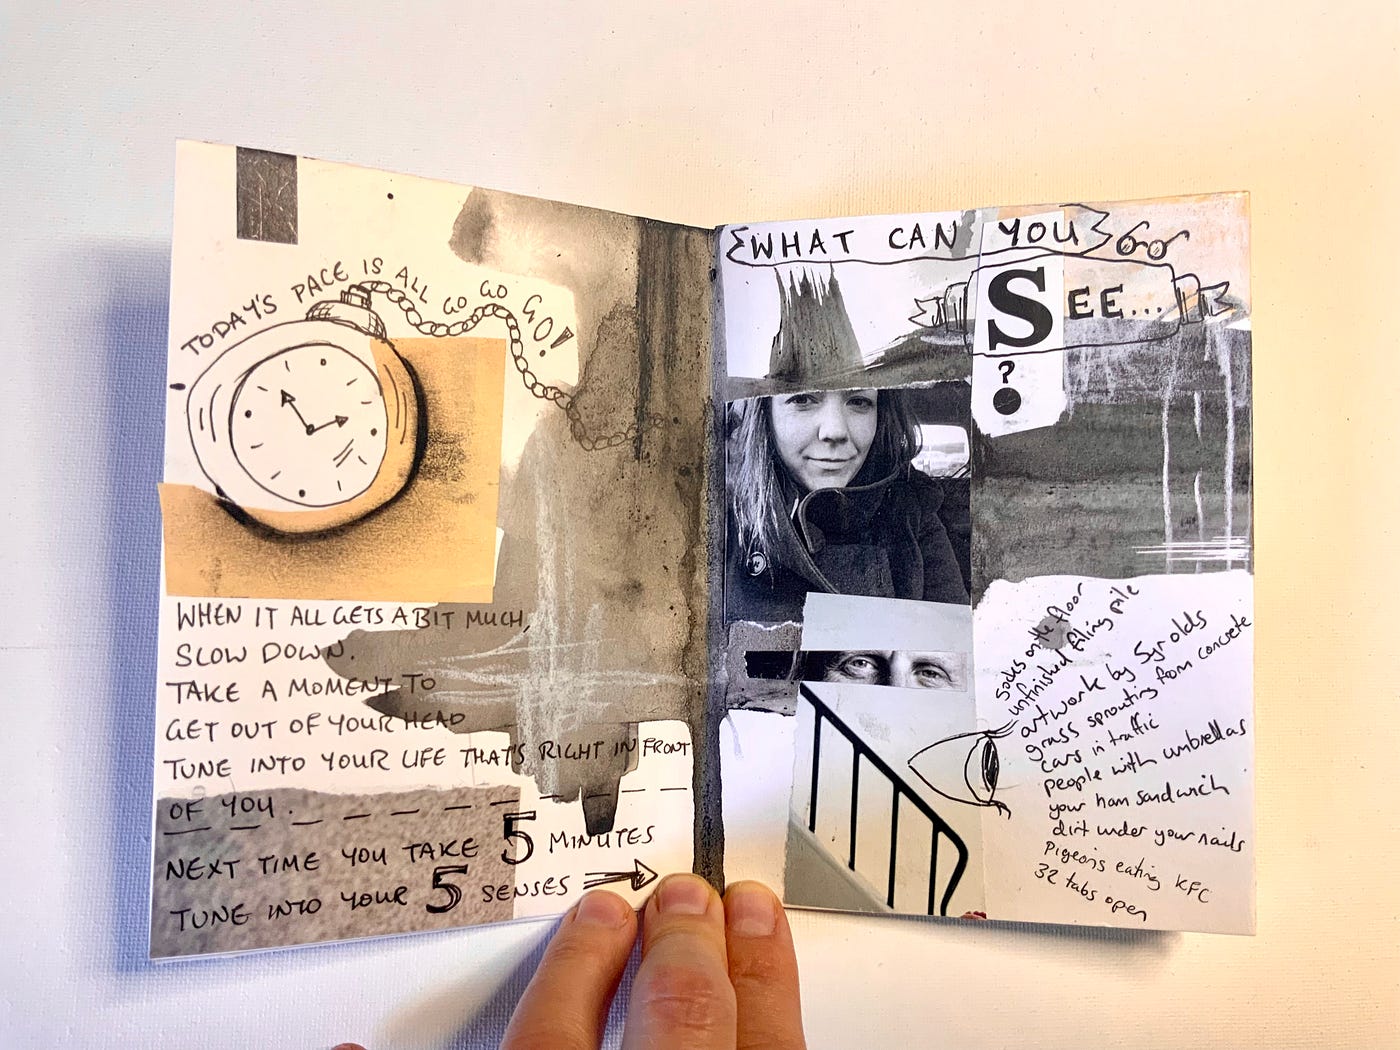 TODAY'S PACE IS ALL GO GO GO!
WHEN IT ALL GETS A BIT MUCH,
SLOW DOWN.
TAKE A MOMENT TO
GET OUT OF YOUR HEAD
TUNE INTO YOUR LIFE THAT'S RIGHT IN FRONT
OF YOU.
NEXT TIME YOU TAKE 5 MINUTES
TUNE INTO YOUR 5 SENSES
WHAT CAN YOU
SEE...
?
socks on the floor
unfinished filing pile
artwork by 5yr olds
grass sprouting from concrete
cars in traffic
people with umbrellas
your ham sandwich
dirt under your nails
Pigeons eating KFC
32 tabs open